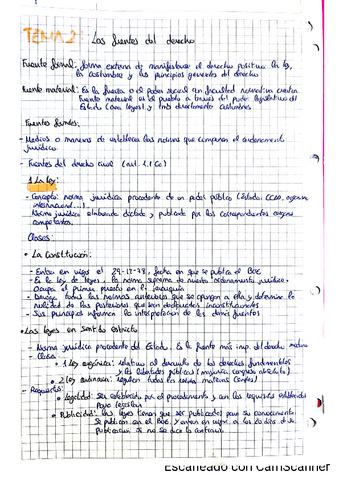 TEMA 2 Las fuentes del derecho
Fuente formal: forma externa de manifestarse el derecho positivo la ley,
la costumbre y los principios generales del derecho
Fuente material: Es la fuerza o el poder social con facultad normativa creadora
Fuente material es el pueblo a través del poder legislativo del
Estado (con leyes) y directamente costumbres
Fuentes formales:
- Medios o maneras de establecer las normas que componen el ordenamiento
jurídico
- Fuentes del derecho civil (art. 1.1 Cc)
1 La ley:
- Concepto: norma jurídica procedente de un poder público (Estado, CCAA, organismo
internacional...)
Norma jurídica elaborada dictada y publicada por los correspondientes órganos
competentes.
Clases:
• La Constitución:
- Entra en vigor el 29-12-78, fecha en que se publica el BOE
- Es la ley de leyes, la norma suprema de nuestro ordenamiento jurídico.
Ocupa el primer puesto en la jerarquía
- Deroga todas las normas anteriores que se opongan a ella y determina la
nulidad de las posteriores que sean declaradas inconstitucionales
- Sus principios informan la interpretación de las demás fuentes
• Las leyes en sentido estricto
- Norma jurídica procedente del Estado. Es la fuente más imp. del derecho
- Clases:
• 1 Ley orgánica: relativas al desarrollo de los derechos fundamentales
y las libertades públicas (mayoría congreso absoluta)
• 2 Ley ordinaria: regulan todas las materias (Cortes)
- Requisitos:
• Legalidad: ser establecida por el procedimiento y con los requisitos establecidos
para
• Publicidad: las leyes tienen que ser publicadas para su conocimiento.
Se publican en el BOE y entran en vigor a los 20 días de su
publicación si no se dice lo contrario.
Escaneado con CamScanner